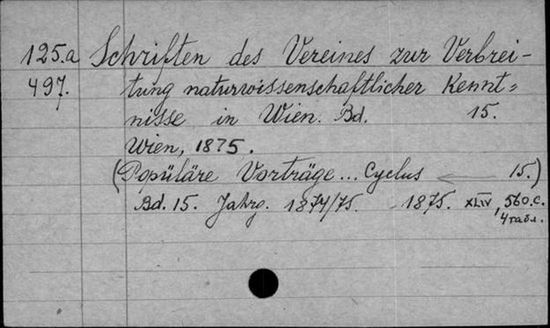 125.a Schriften des Vereines zur Verbrei-
497. tung naturwissenschaftlicher Kennt-
nisse in Wien. Bd. 15.
Wien, 1875.
(Populäre Vorträge... Cyclus 15.)
Bd. 15. Jahrg. 1874/75. 1875. XLIV, 560 с.
4 табл.